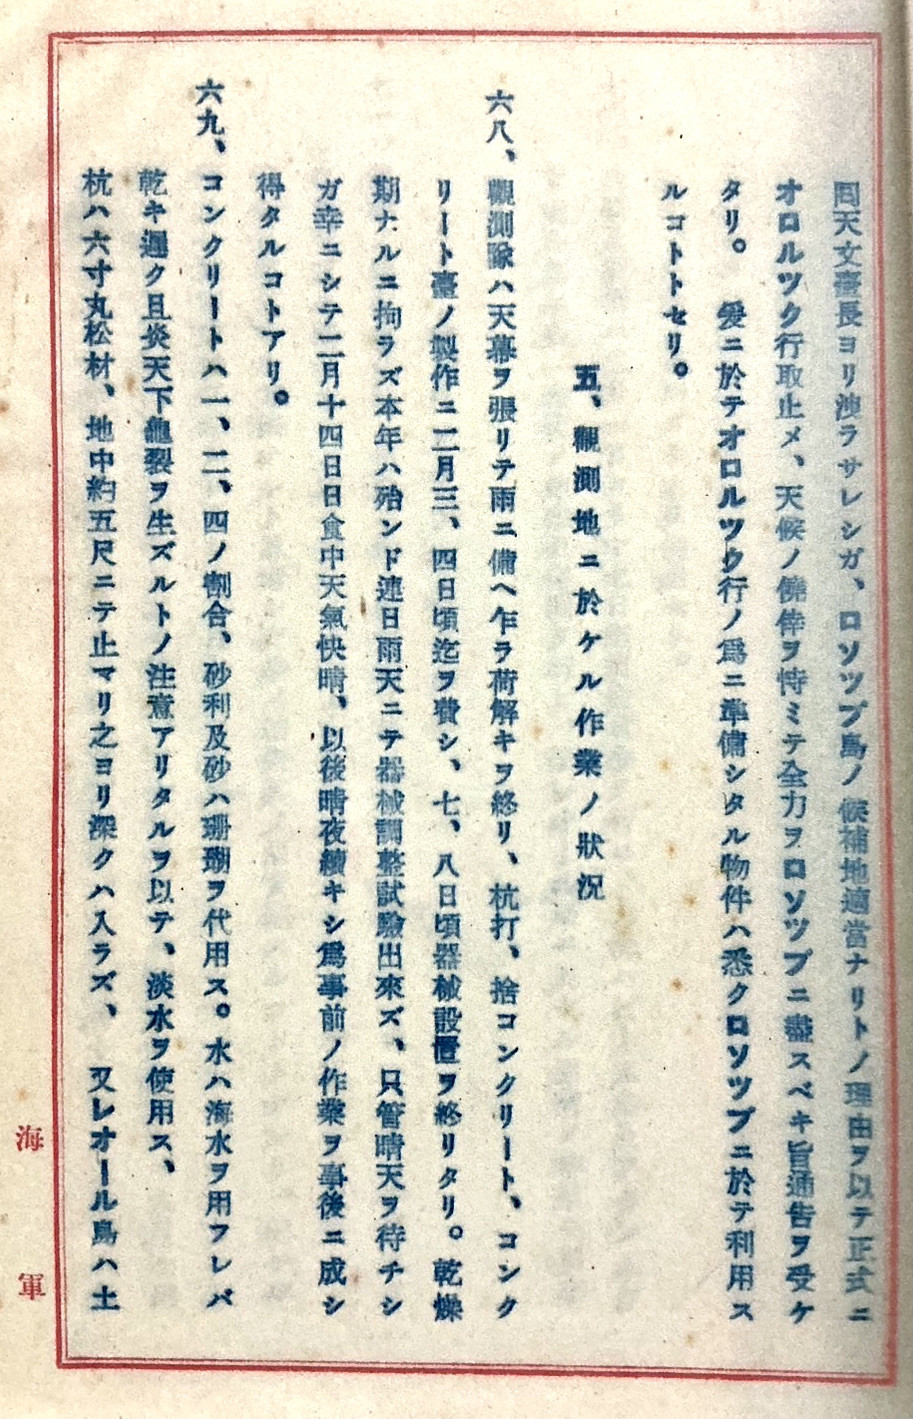 同天文臺長ヨリ洩ラサレシガ、ロソツプ島ノ候補地適當ナリトノ理由ヲ以テ正式ニ
オロルツク行取止メ、天候ノ僥倖ヲ恃ミテ全力ヲロソツプニ盡スベキ旨通告ヲ受ケ
タリ。爰ニ於テオロルツク行ノ爲ニ準備シタル物件ハ悉クロソツプニ於テ利用ス
ルコトトセリ。
五、觀測地ニ於ケル作業ノ狀況
六八、觀測隊ハ天幕ヲ張リテ雨ニ備ヘ乍ラ荷解キヲ終リ、杭打、捨コンクリート、コンク
リート臺ノ製作ニ二月三、四日頃迄ヲ費シ、七、八日頃器械設置ヲ終リタリ。乾燥
期ナルニ拘ラズ本年ハ殆ンド連日雨天ニテ器械調整試驗出來ズ、只管晴天ヲ待チシ
ガ幸ニシテ二月十四日日食中天氣快晴、以後晴夜續キシ爲事前ノ作業ヲ事後ニ成シ
得タルコトアリ。
六九、コンクリートハ一、二、四ノ割合、砂利及砂ハ珊瑚ヲ代用ス。水ハ海水ヲ用フレバ
乾キ遲ク且炎天下龜裂ヲ生ズルトノ注意アリタルヲ以テ、淡水ヲ使用ス、
杭ハ六寸丸松材、地中約五尺ニテ止マリ之ヨリ深クハ入ラズ、又レオール島ハ土
海軍